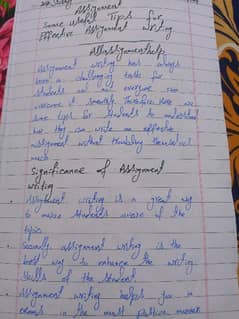 Assignment
Some Useful Tips for
Effective Assignment writing
Allassignmenthelp
Assignment writing has always
been a challenging task for
students and not everyone can
overcome it smoothly Therefore Here are
some tips for students to understand
how they can write an effective
assignment without troubling themselves
much
Significance of Assignment
writing
• Assignment writing is a great way
to make students aware of the
topics
• Secondly, assignment writing is the
best way to enhance the writing
skills of the student
• Assignment writing helps you in
exams in the most positive manner